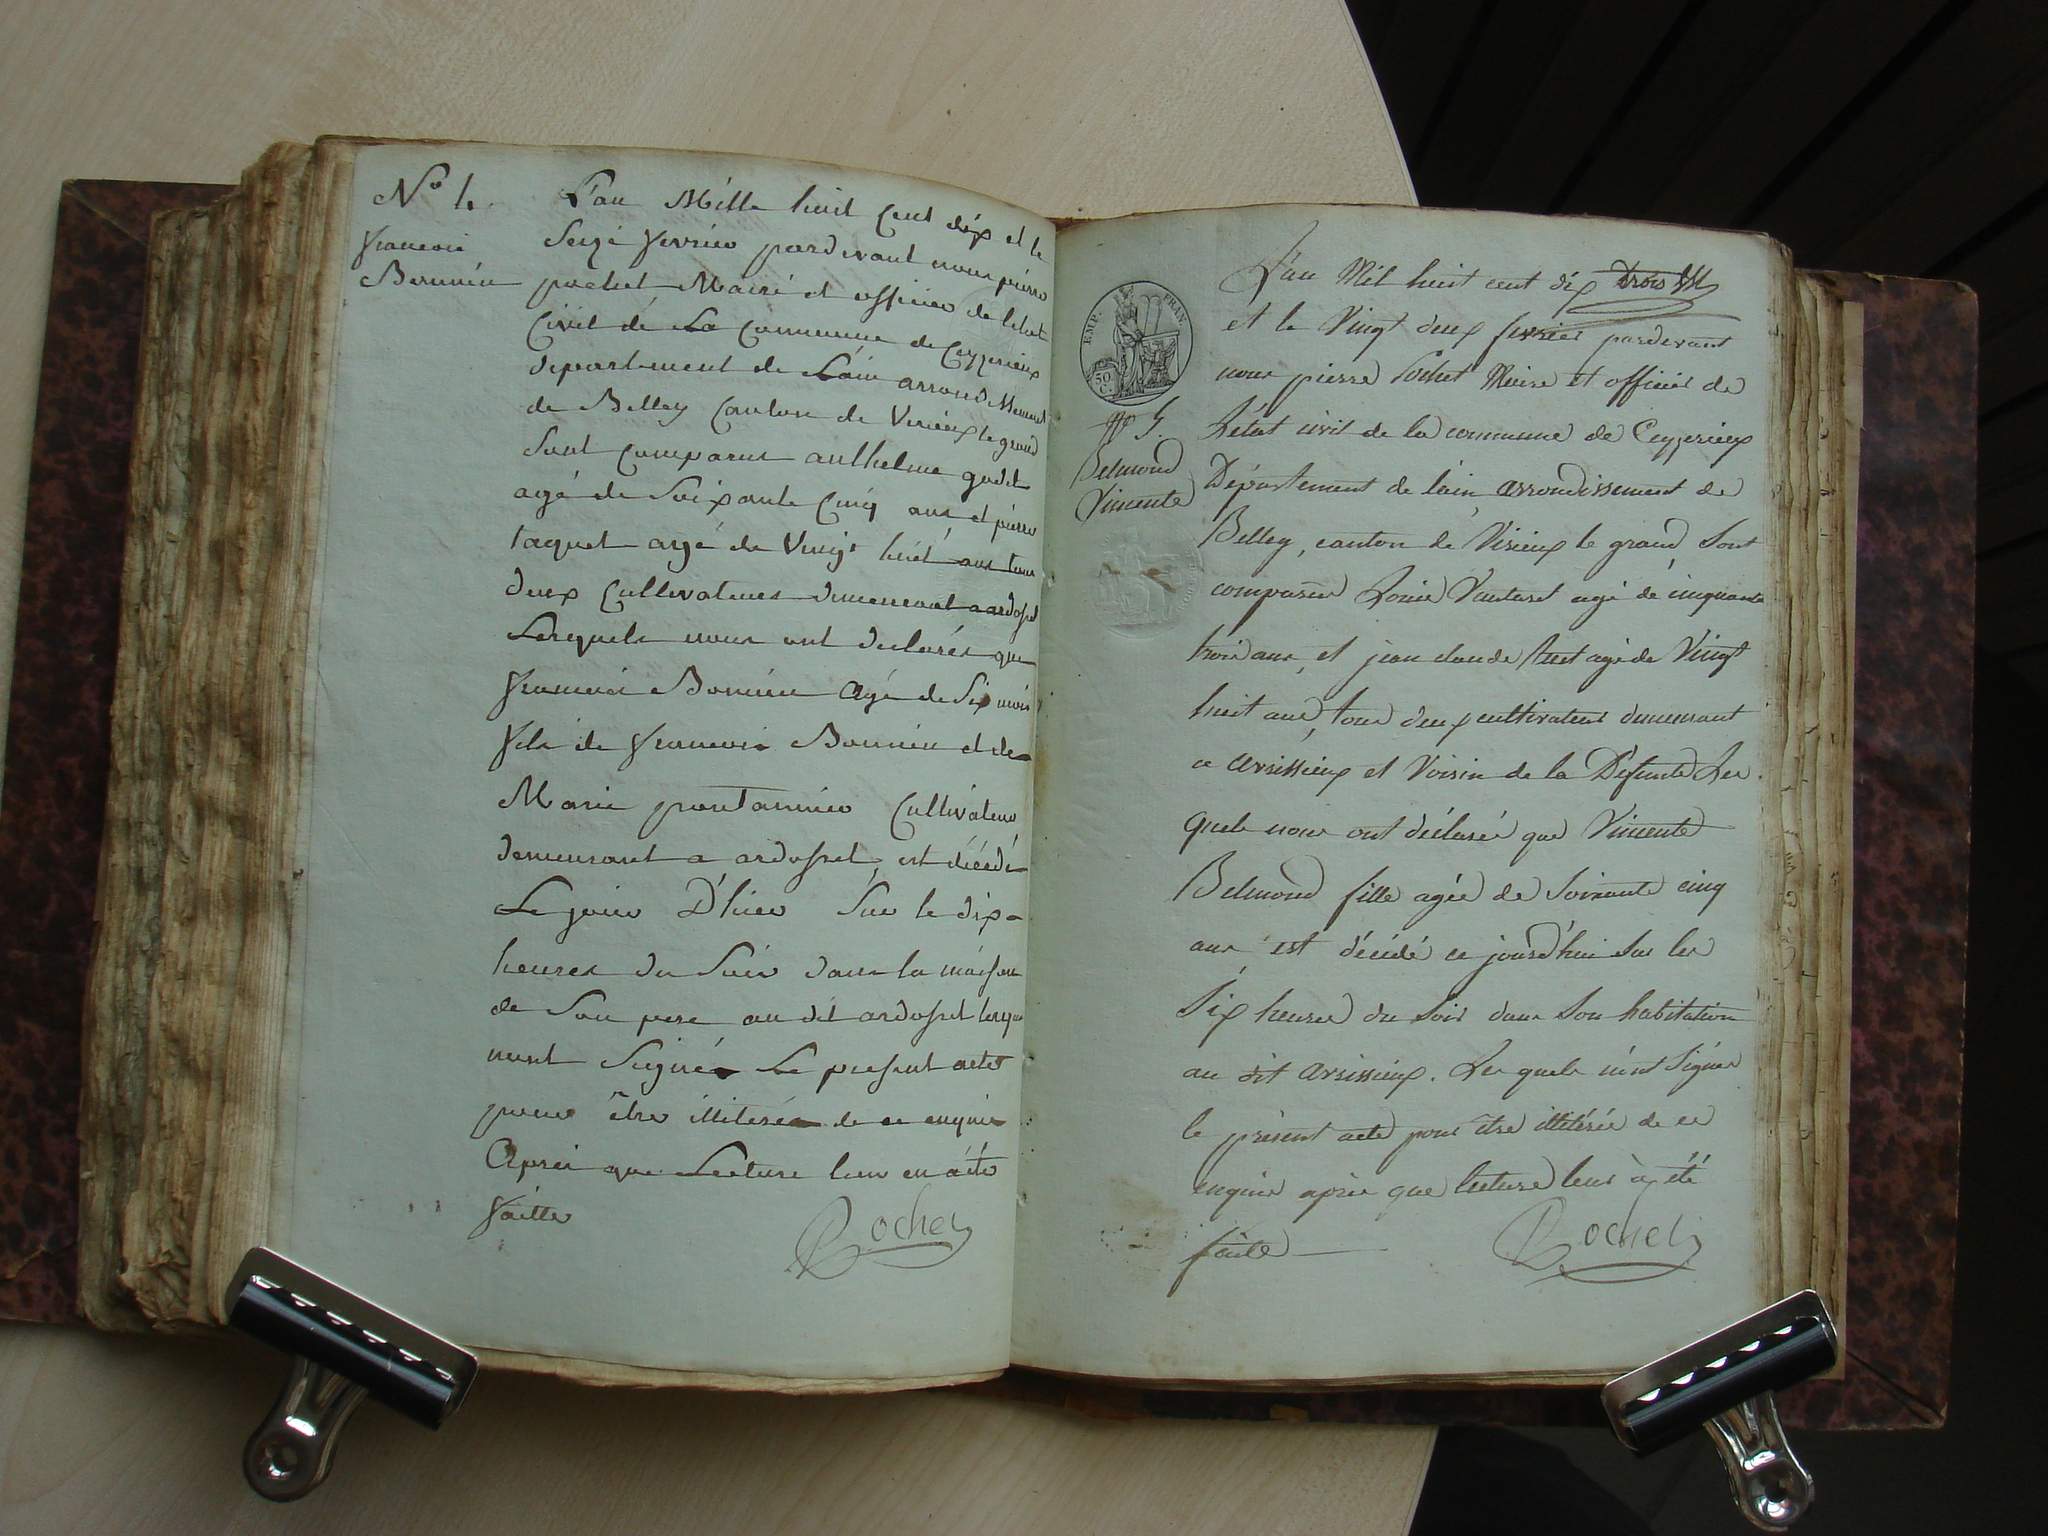 N° 4.
francois
Bonnin
L'an Mille huit Cent dix et le
Seize fevrier pardevant nous pierre
pochet Maire et officier de letat
Civil de La Commune de Ceyzerieux
departement de Lain arrondissement
de Belley Canton de Virieux le grand
Sont Comparus anthelme godet
agé de Soixante Cinq ans et pierre
taquet agé de Vingt huit ans tous
deux Cultivateurs demeurant a ardosset
Lesquels nous ont declarés que
francois Bonnin agé de Six mois
fils de francois Bonnin et de
Marie Cultivateur
demeurant a ardosset, est décédé
Le jour D'hier Sur le dix
heures du Soir dans la maison
de Son pere au dit ardosset lesquels
nont Seignés Le present acte
pour être illiterés de ce enquis
Après que Lecture leur en a été
faitte
Pochet
EMP. FRAN.
50 C.
N° 5.
Belmond
Vincente
L'an Mil huit cent dix
et le Vingt deux fevrier pardevant
nous pierre Pochet Maire et officier de
L'état civil de la commune de Ceyzerieux
Département de lain, arrondissement de
Belley, canton de Virieux le grand Sont
comparus Louis Vauturet agé de cinquante
trois ans, et jean claude agé de Vingt
huit ans, tous deux cultivateurs demeurant
a avrissieux et Voisin de la Défunte Les
quels nous ont déclaré que Vincente
Belmond fille agée de Soixante cinq
ans est décédé ce jourd'hui sur les
Six heures du Soir dans Son habitation
au dit avrissieux. Les quels n'ont Signés
le présent acte pour être illitérés de ce
enquis après que lecture leur à été
faite
Pochet